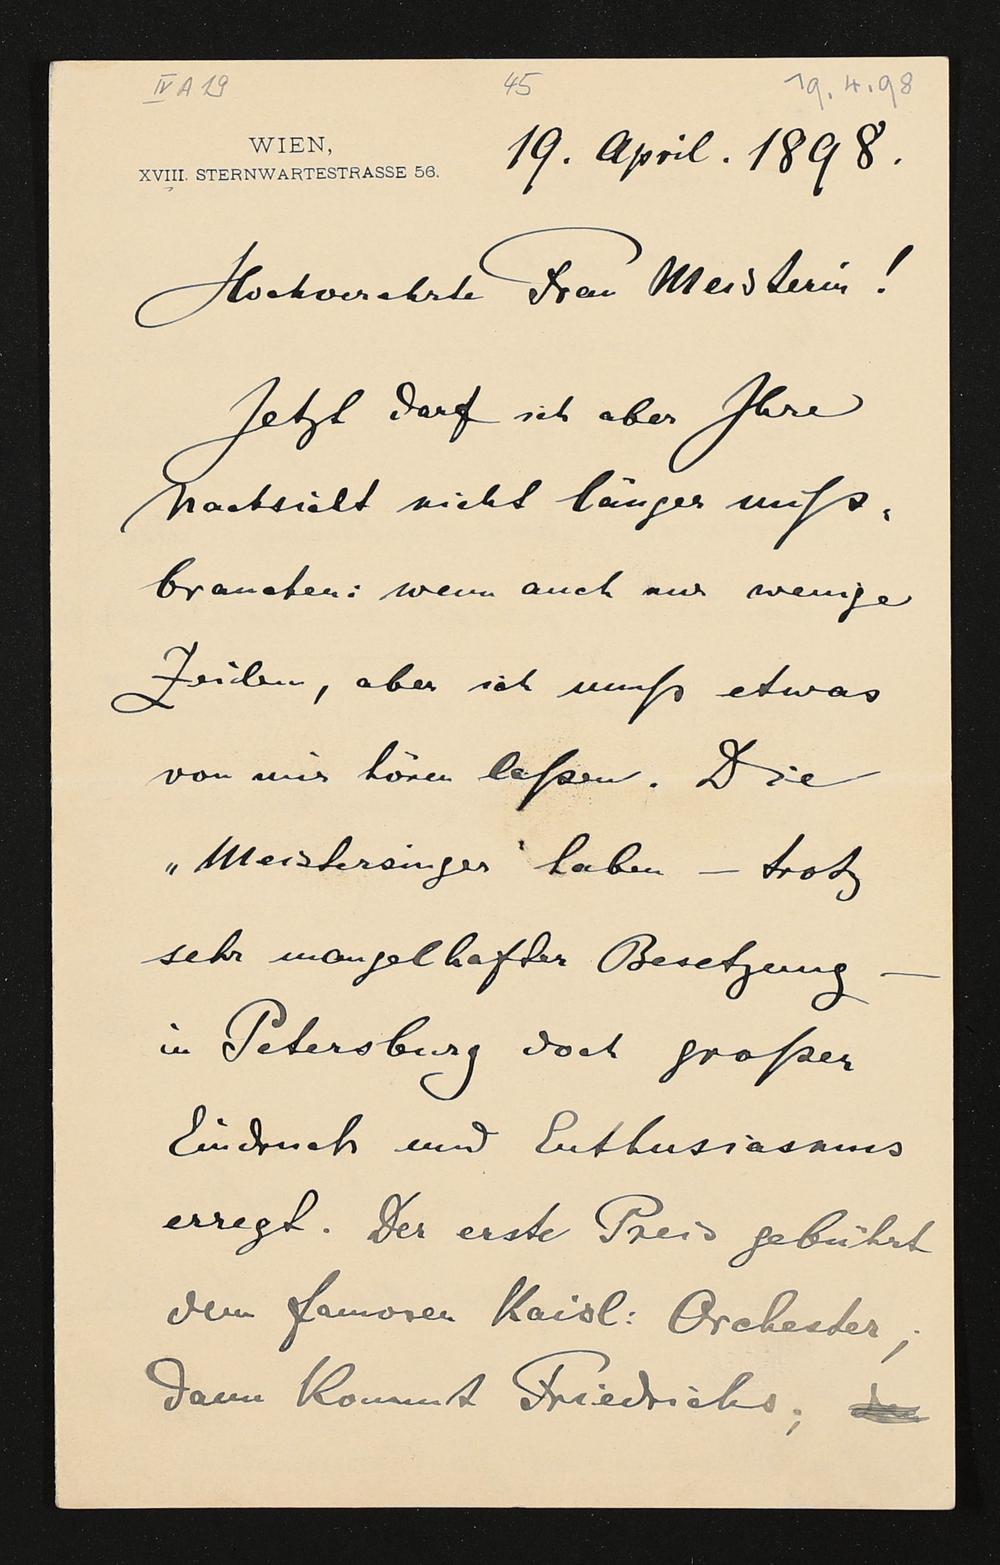 IV A 19 45 19.4.98
WIEN,
XVIII. STERNWARTESTRASSE 56.
19. April. 1898.
Hochverehrte Frau Meisterin!
Jetzt darf ich aber Ihre
Nachsicht nicht länger miß-
brauchen: wenn auch nur wenige
Zeilen, aber ich muß etwas
von mir hören laßen. Die
„Meistersinger" haben — trotz
sehr mangelhafter Besetzung —
in Petersburg doch großen
Eindruck und Enthusiasmus
erregt. Der erste Preis gebührt
dem famosen Kaisl: Orchester;
dann kommt Friedrichs;